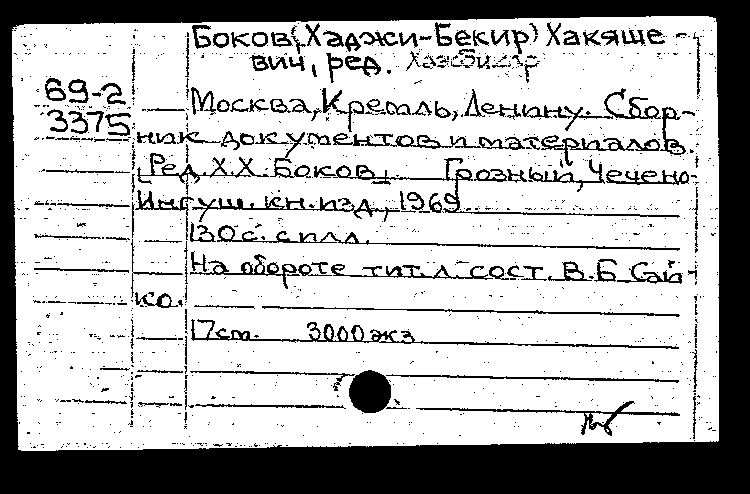 Боков (Хаджи-Бекир) Хакяше-
вич, ред. Хаэсбикар
69-2
3375
Москва, Кремль, Ленину. Сбор-
ник документов и материалов.
[Ред. Х.Х. Боков] Грозный, Чечено-
Ингуш. кн. изд., 1969
130 с. с илл.
На обороте тит. л. сост. В.Б. Сай-
ко.
17 см. 3000 экз